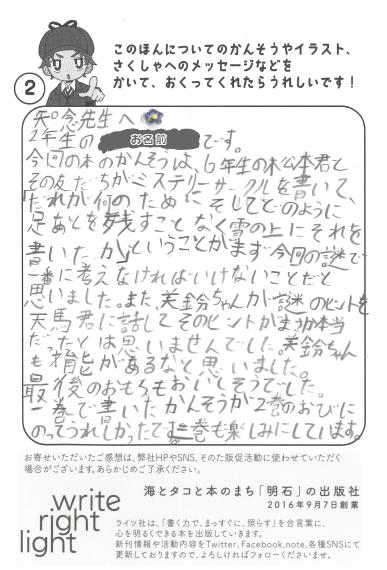 このほんについてのかんそうやイラスト、
さくしゃへのメッセージなどを
かいて、おくってくれたらうれしいです！
2
知念先生へ
2年生の お名前 です。
今回の本のかんそうは、6年生の松本君と
その友だちがミステリーサークルを書いて、
「だれが何のために そしてどのように
足あとを残すことなく雪の上にそれを
書いたか」ということがまず今回の謎で
一番に考えなければいけないことだと
思いました。また、美鈴ちゃんが謎のヒントを
天馬君に話してそのヒントがまさか本当
だったとは思いませんでした。美鈴ちゃん
も才能があるなと思いました。
最後のおもちもおいしそうでした。
一巻で書いたかんそうが2巻のおびに
のってうれしかったです。三巻も楽しみにしています。
お寄せいただいたご感想は、弊社HPやSNS、そのた販促活動に使わせていただく
場合がございます。あらかじめご了承ください。
write
right
light
海とタコと本のまち「明石」の出版社
2016年9月7日創業
ライツ社は、「書く力で、まっすぐに、照らす」を合言葉に、
心を明るくできる本を出版していきます。
新刊情報や活動内容をTwitter、Facebook、note、各種SNSにて
更新しておりますので、よろしければフォローくださいませ。